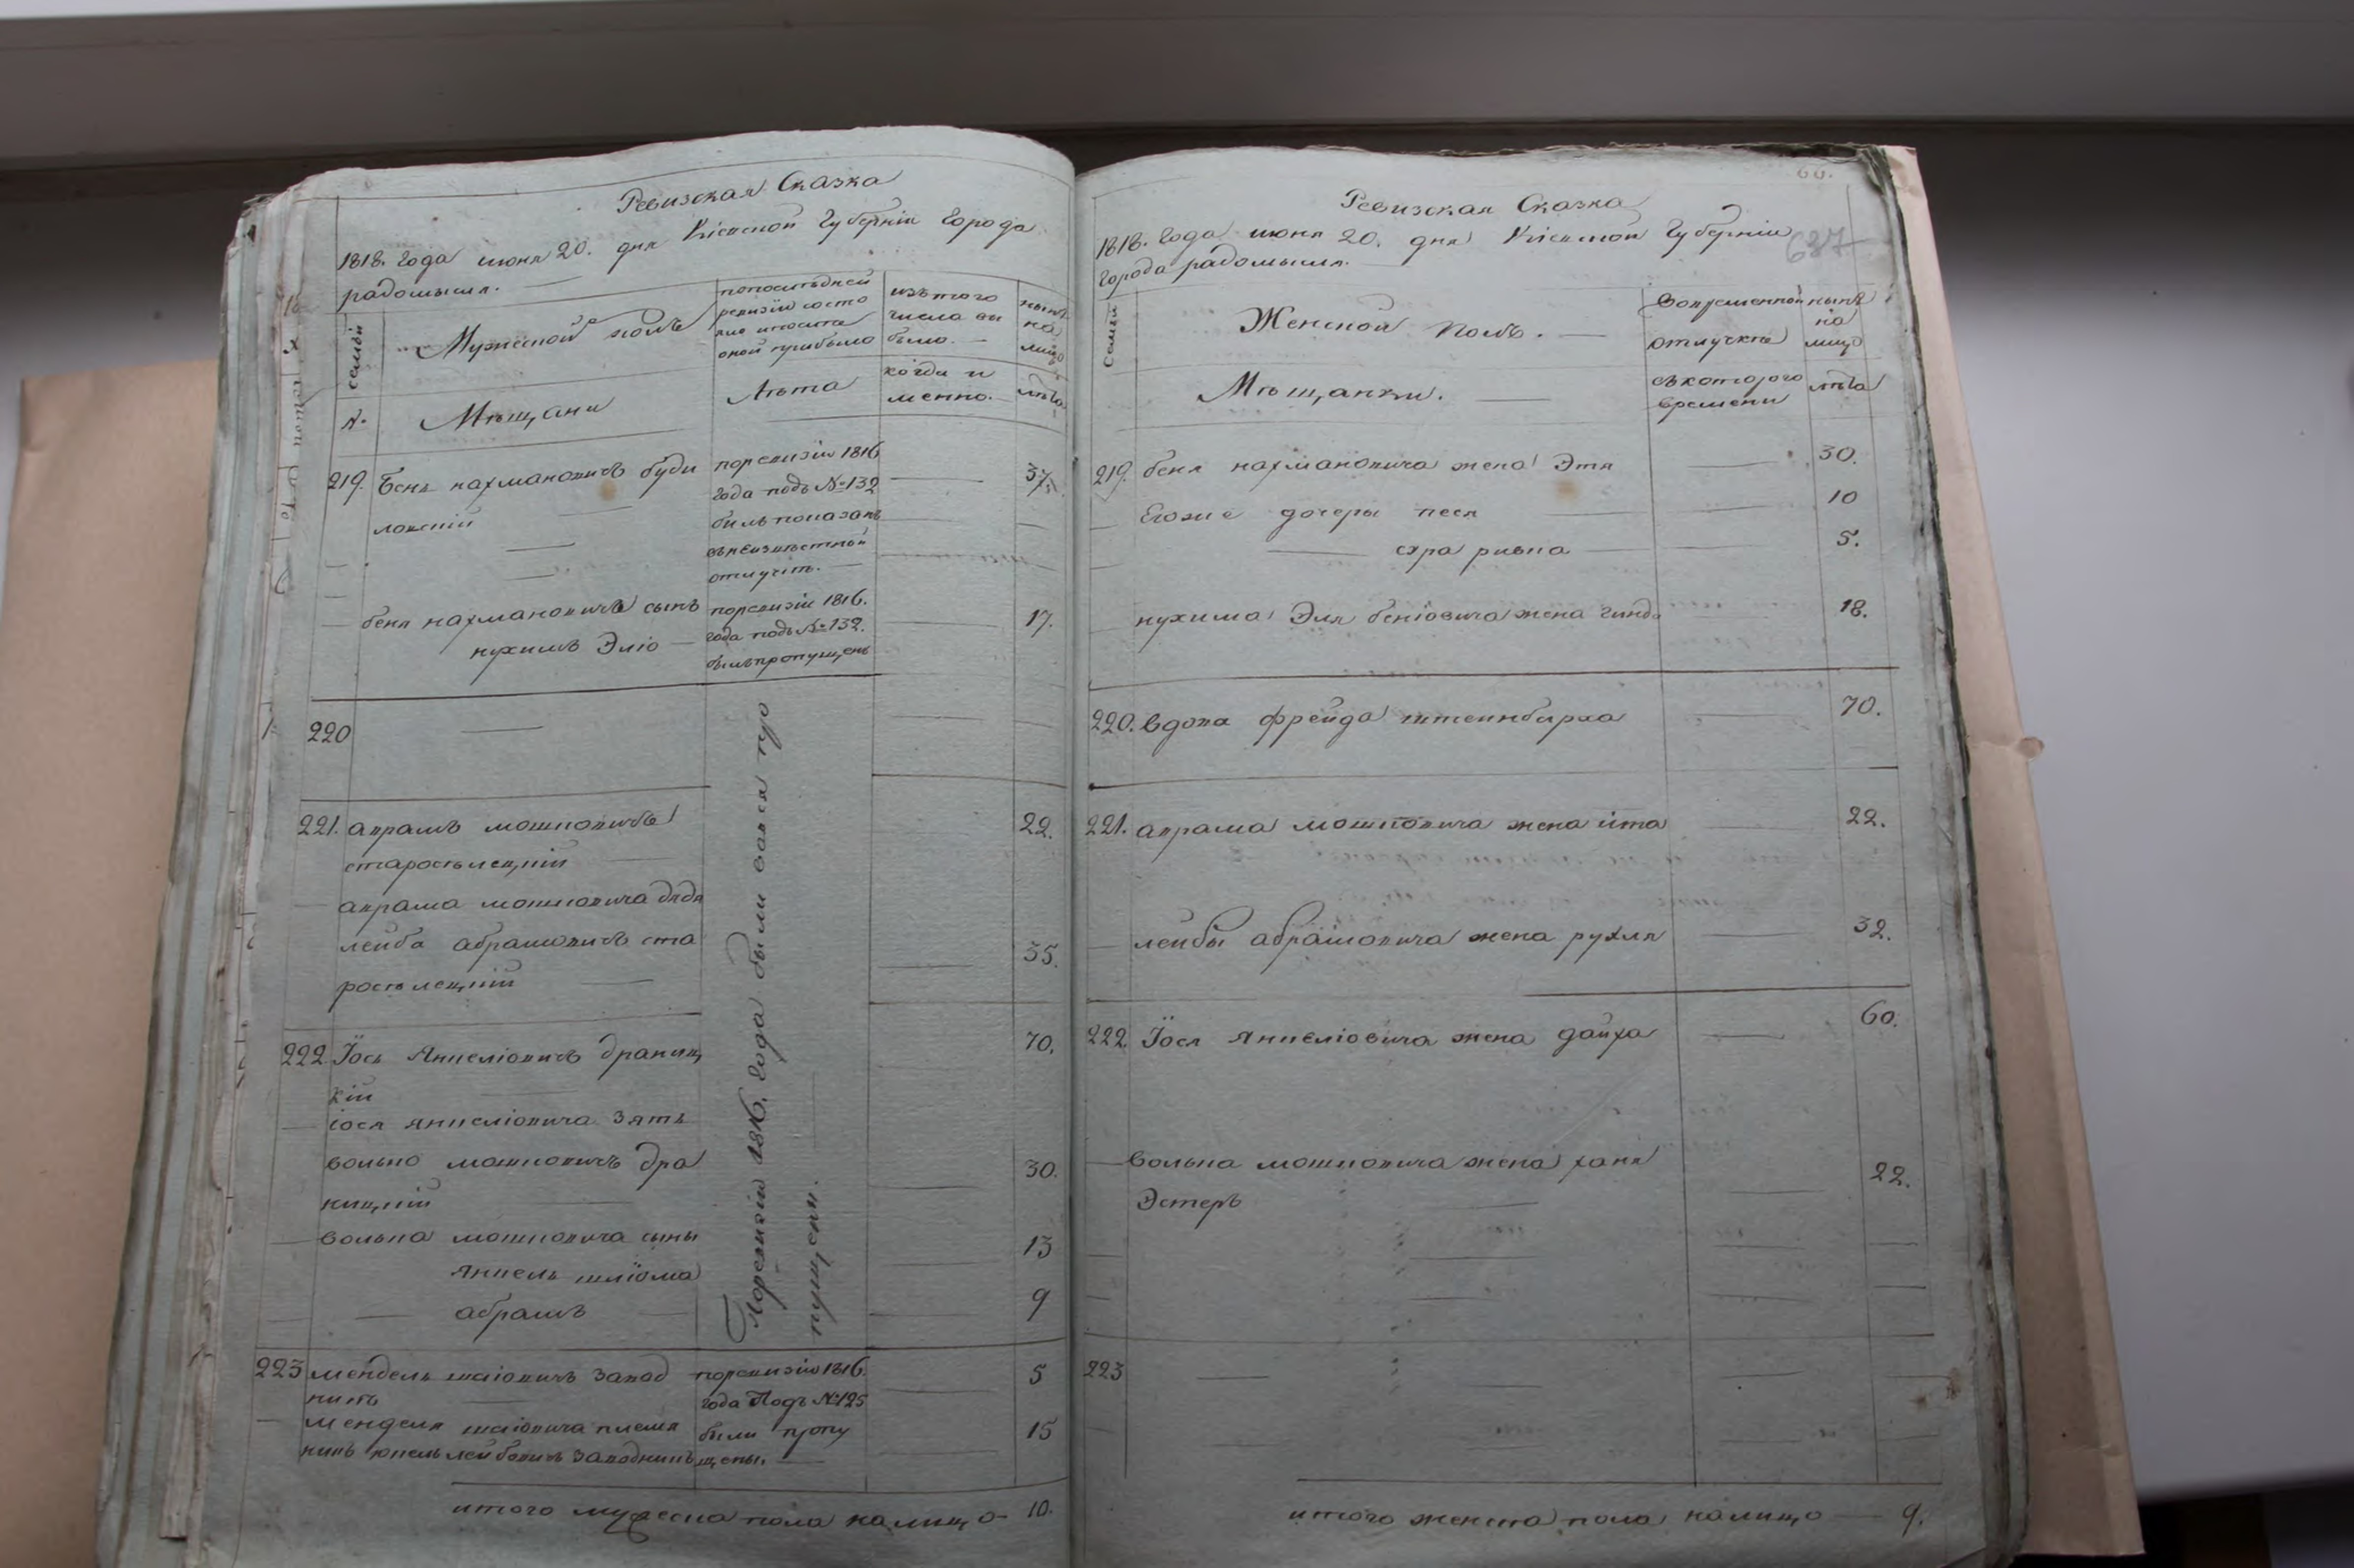 Ревизская Сказка
1818. года июня 20. дня Кіевской Губерніи города
радомысля.
семьи
Мужеской полъ
попослѣдней
ревизіи состо
яло ипосле
оной прибыло
изътого
числа вы
было.
нынѣ
на
лицо
№.
Мѣщани
Лѣта
когда и
менно.
лѣта
219. Бень нахмановичъ буди
ловскій
поревизіи 1816
года подъ №132
былъ показанъ
въ неизвѣстной
отлучкѣ.
37.
беня нахмановича сынъ
нухимъ Эліо
поревизіи 1816.
года подъ №132.
былъ пропущенъ
17.
220
Поревизіи 1816. года были вовся про
пущени.
221. аврамъ мошковичъ
старосѣлецкій
22.
аврама мошковича дядя
лейба абрамовичъ ста
росѣлецкій
35.
222. Іось Янкеліовичъ драниц
кій
70.
іося янкеліовича зять
волько мошковичъ дра
ницкій
30.
волька мошковича сыны
янкель шліома
13
абрамъ
9
223 мендель шаіовичъ завод
никъ
поревизіи 1816
года Подъ №125
5
менделя шаіовича племя
никъ юкель лейбовичъ заводникъ
были пропу
щены.
15
итого мужеска пола налицо 10.
60.
Ревизская Сказка
1818. года июня 20. дня Кіевской Губерніи
города радомысля.
627
семьи
Женской полъ.
вовременной
отлучкѣ
нынѣ
на
лицо
Мѣщанки.
съкотораго
времени
лѣта
219. беня нахмановича жена Этя 30.
Егоже дочеры песя 10
сура ривка 5.
нухима Эля беніовича жена гинда 18.
220. вдова фрейда штеинбарха 70.
221. аврама мошковича жена ита 22.
лейбы абрамовича жена рухля 32.
222. Іося янкеліовича жена дайха 60.
волька мошковича жена ханя 22.
Эстеръ
223
итого женска пола налицо 9.